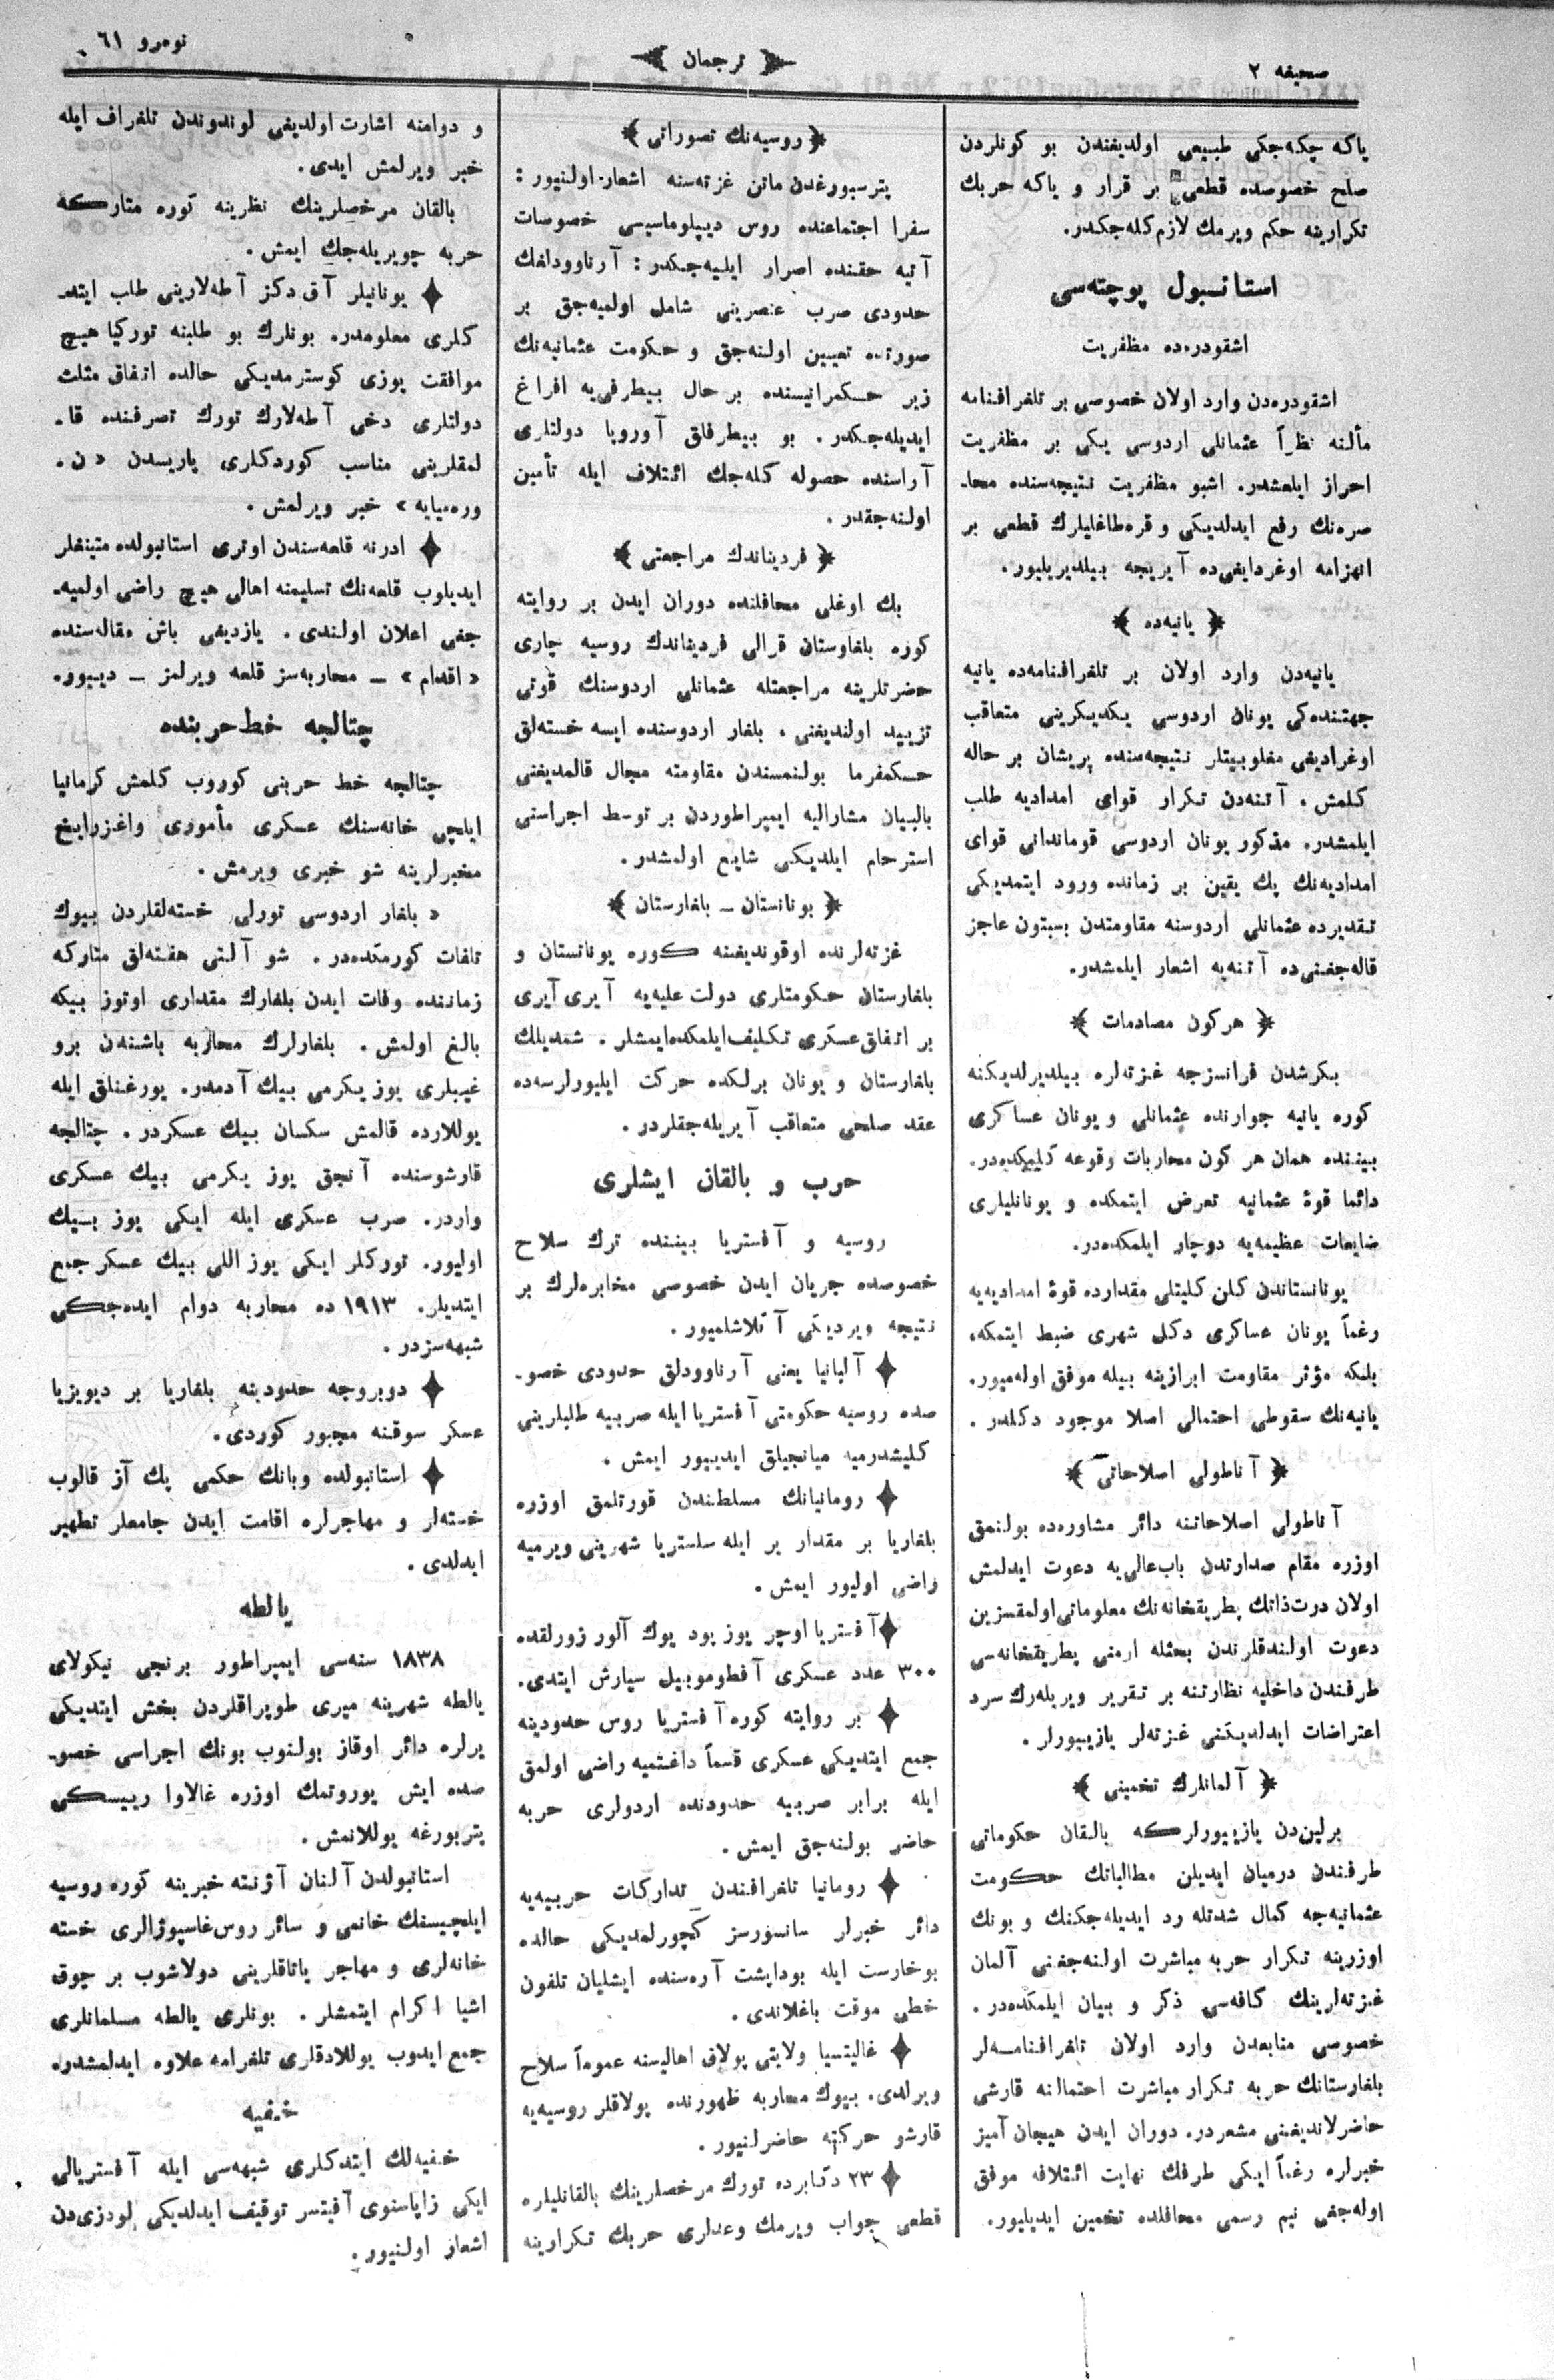 صحیفه ٢
ترجمان
نومرو ٦١
یاكه چكه‌جكی طبیعی اولدیغندن بو كونلردن
صلح خصوصده قطعی بر قرار و یاكه حربك
تكرارینه حكم ویرمك لازم كله‌جكدر.
استانبول پوچته‌سی
اشقودره‌ده مظفریت
اشقودره‌دن وارد اولان خصوصی بر تلغرافنامه
مألنه نظراً عثمانلی اردوسی یكی بر مظفریت
احراز ایلمشدر. اشبو مظفریت نتیجه‌سنده محا-
صره‌نك رفع ایدلدیكی و قره‌طاغلیلرك قطعی بر
انهزامه اوغردایغی‌ده آیریجه بیلدیریلیور.
﴿ یانیه‌ده ﴾
یانیه‌دن وارد اولان بر تلغرافنامه‌ده یانیه
جهتنده‌كی یونان اردوسی یكدیكرینی متعاقب
اوغرادیغی مغلوبیتلر نتیجه‌سنده پریشان بر حاله
كلمش، آتنه‌دن تكرار قوای امدادیه طلب
ایلمشدر. مذكور یونان اردوسی قوماندانی قوای
امدادیه‌نك پك یقین بر زمانده ورود ایتمدیكی
تقدیرده عثمانلی اردوسنه مقاومتدن بسبتون عاجز
قاله‌جغنی‌ده آتنه‌یه اشعار ایلمشدر.
﴿ هركون مصادمات ﴾
بكرشدن فرانسزجه غزته‌لره بیلدیرلدیكنه
كوره یانیه جوارنده عثمانلی و یونان عساكری
بیننده همان هر كون محاربات وقوعه كلیمكده‌در.
دائما قوهٔ عثمانیه تعرض ایتمكده و یونانلیلری
ضایعات عظیمه‌یه دوچار ایلمكده‌در.
یونانستاندن كلن كلیتلی مقدارده قوهٔ امدادیه‌یه
رغماً یونان عساكری دكل شهری ضبط ایتمكه،
بلكه مؤثر مقاومت ابرازینه بیله موفق اوله‌میور.
یانیه‌نك سقوطی احتمالی اصلا موجود دكلدر.
﴿ آناطولی اصلاحاتی ﴾
آناطولی اصلاحاتنه دائر مشاوره‌ده بولنمق
اوزره مقام صدارتدن باب‌عالی‌یه دعوت ایدلمش
اولان درت‌ذاتك بطریقخانه‌نك معلوماتی‌اولمقسزین
دعوت اولندقلرندن بحثله ارمنی بطریقخانه‌سی
طرفندن داخلیه نظارتنه بر تقریر ویریله‌رك سرد
اعتراضات ایدلدیكنی غزته‌لر یازیبورلر.
﴿ آلمانلرك تخمینی ﴾
برلین‌دن یازیبورلركه بالقان حكوماتی
طرفندن درمیان ایدیلن مطالباتك حكومت
عثمانیه‌جه كمال شدتله رد ایدیله‌جكنك و بونك
اوزرینه تكرار حربه مباشرت اولنه‌جغنی آلمان
غزته‌لرینك كافه‌سی ذكر و بیان ایلمكده‌در.
خصوصی منابعدن وارد اولان تلغرافنامه‌لر
بلغارستانك حربه تكرار مباشرت احتمالنه قارشی
حاضرلاندیغنی مشعردر. دوران ایدن هیجان آمیز
خبرلره رغماً ایكی طرفك نهایت ائتلافه موفق
اوله‌جغی نیم رسمی محافلده تخمین ایدیلیور.
﴿ روسیه‌نك تصوراتی ﴾
پترسبورغدن ماتن غزته‌سنه اشعار اولنیور:
سفرا اجتماعنده روس دیپلوماسیسی خصوصات
آتیه حقنده اصرار ایلیه‌جكدر: آرناوودلغك
حدودی صرب عنصرینی شامل اولمیه‌جق بر
صورتده تعیین اولنه‌جق و حكومت عثمانیه‌نك
زیر حكمرانیسنده بر حال بیطرفی‌یه افراغ
ایدیله‌جكدر. بو بیطرفلق آوروپا دولتلری
آراسنده حصوله كله‌جك ائتلاف ایله تأمین
اولنه‌جقدر.
﴿ فردیناندك مراجعتی ﴾
بك اوغلی محافلنده دوران ایدن بر روایته
كوره بلغاوستان قرالی فردیناندك روسیه چاری
حضرتلرینه مراجعتله عثمانلی اردوسنك قوتی
تزیید اولندیغنی، بلغار اردوسنده ایسه خسته‌لق
حكمفرما بولنمسندن مقاومته مجال قالمدیغنی
بالبیان مشارالیه ایمپراطوردن بر توسط اجراسنی
استرحام ایلدیكی شایع اولمشدر.
﴿ یونانستان ـ بلغارستان ﴾
غزته‌لرنده اوقوندیغنه كوره یونانستان و
بلغارستان حكومتلری دولت علیه‌یه آیری آیری
بر اتفاق‌عسكری تكلیف‌ایلمكده‌ایمشلر. شمدیلك
بلغارستان و یونان برلكده حركت ایلیورلرسه‌ده
عقد صلحی متعاقب آیریله‌جقلردر.
حرب و بالقان ایشلری
روسیه و آفستریا بیننده ترك سلاح
خصوصده جریان ایدن خصوصی مخابره‌لرك بر
نتیجه ویردیكی آڭلاشلمیور.
♦ آلبانیا یعنی آرناوودلق حدودی خصو-
صده روسیه حكومتی آفستریا ایله صربیه طلبلرینی
كلیشدرمیه میانجیلق ایدیبور ایمش.
♦ رومانیانك مسلطندن قورتلمق اوزره
بلغاریا بر مقدار یر ایله سلستریا شهرینی ویرمیه
راضی اولیور ایمش.
♦ آفستریا اوچر یوز پود یوك آلور زورلقده
٣٠٠ عدد عسكری آفطوموبیل سپارش ایتدی.
♦ بر روایته كوره آفستریا روس حدودینه
جمع ایتدیكی عسكری قسماً داغتمیه راضی اولمق
ایله برابر صربیه حدودنده اردولری حربه
حاضر بولنه‌جق ایمش.
♦ رومانیا تلغرافندن تداركات حربیه‌یه
دائر خبرلر سانسورسز كچورلمدیكی حالده
بوخارست ایله بوداپشت آره‌سنده ایشلیان تلفون
خطی موقت باغلاندی.
♦ غالیتسیا ولایتی پولاق اهالیسنه عموماً سلاح
ویرلدی. بیوك محاربه ظهورنده پولاقلر روسیه‌یه
قارشو حركته حاضرلنیور.
♦ ٢٣ دكابرده تورك مرخصلرینك بالقانلیلره
قطعی جواب ویرمك وعدلری حربك تكرارینه
و دوامنه اشارت اولدیغی لوندوندن تلغراف ایله
خبر ویرلمش ایدی.
بالقان مرخصلرینك نظرینه كوره متاركه
حربه چویریله‌جك ایمش.
♦ یونانیلر آق دكز آطه‌لارینی طلب ایتد-
كلری معلومدر. بونلرك بو طلبنه توركیا هیچ
موافقت یوزی كوسترمدیكی حالده اتفاق مثلث
دولتلری دخی آطه‌لارك تورك تصرفنده قا-
لمقلرینی مناسب كوردكلری پاریسدن «ن.
وره‌میایه» خبر ویرلمش.
♦ ادرنه قلعه‌سندن اوتری استانبولده متینغلر
ایدیلوب قلعه‌نك تسلیمنه اهالی هیچ راضی اولمیه-
جغی اعلان اولندی. یازدیغی باش مقاله‌سنده
«اقدام» ـ محاربه‌سز قلعه ویرلمز ـ دیبور.
چتالجه خط حربنده
چتالجه خط حربنی كوروب كلمش كرمانیا
ایلچی خانه‌سنك عسكری مأموری واغزرایغ
مخبرلرینه شو خبری ویرمش.
«بلغار اردوسی تورلی خسته‌لقلردن بیوك
تلفات كورمكده‌در. شو آلتی هفته‌لق متاركه
زماننده وفات ایدن بلغارك مقداری اوتوز بیكه
بالغ اولمش. بلغارلرك محاربه باشندن برو
غیبلری یوز یكرمی بیك آدمدر. یورغنلق ایله
یوللارده قالمش سكسان بیك عسكردر. چتالجه
قارشوسنده آنجق یوز یكرمی بیك عسكری
واردر. صرب عسكری ایله ایكی یوز بیك
اولیور. توركلر ایكی یوز اللی بیك عسكر جمع
ایتدیلر. ١٩١٣ ده محاربه دوام ایده‌جكی
شبهه‌سزدر.
♦ دوبروجه حدودینه بلغاریا بر دیویزیا
عسكر سوقنه مجبور كوردی.
♦ استانبولده وبانك حكمی پك آز قالوب
خسته‌لر و مهاجرلره اقامت ایدن جامعلر تطهیر
ایدلدی.
یالطه
١٨٣٨ سنه‌سی ایمپراطور برنجی نیكولای
یالطه شهرینه میری طوپراقلردن بخش ایتدیكی
یرلره دائر اوقاز بولنوب بونك اجراسی خصو-
صده ایش یوروتمك اوزره غالاوا رییسكی
پتربورغه یوللانمش.
استانبولدن آلنان آژنته خبرینه كوره روسیه
ایلچیسنك خانمی و سائر روس‌غاسپوژالری خسته
خانه‌لری و مهاجر یاتاقلرینی دولاشوب بر چوق
اشیا اكرام ایتمشلر. بونلری یالطه مسلمانلری
جمع ایدوب یوللادقلری تلغرامه علاوه ایدلمشدر.
خفیه
خفیه‌لك ایتدكلری شبهه‌سی ایله آفستریالی
ایكی زاپاسنوی آفیتسر توقیف ایدلدیكی لودزی‌دن
اشعار اولنیور.